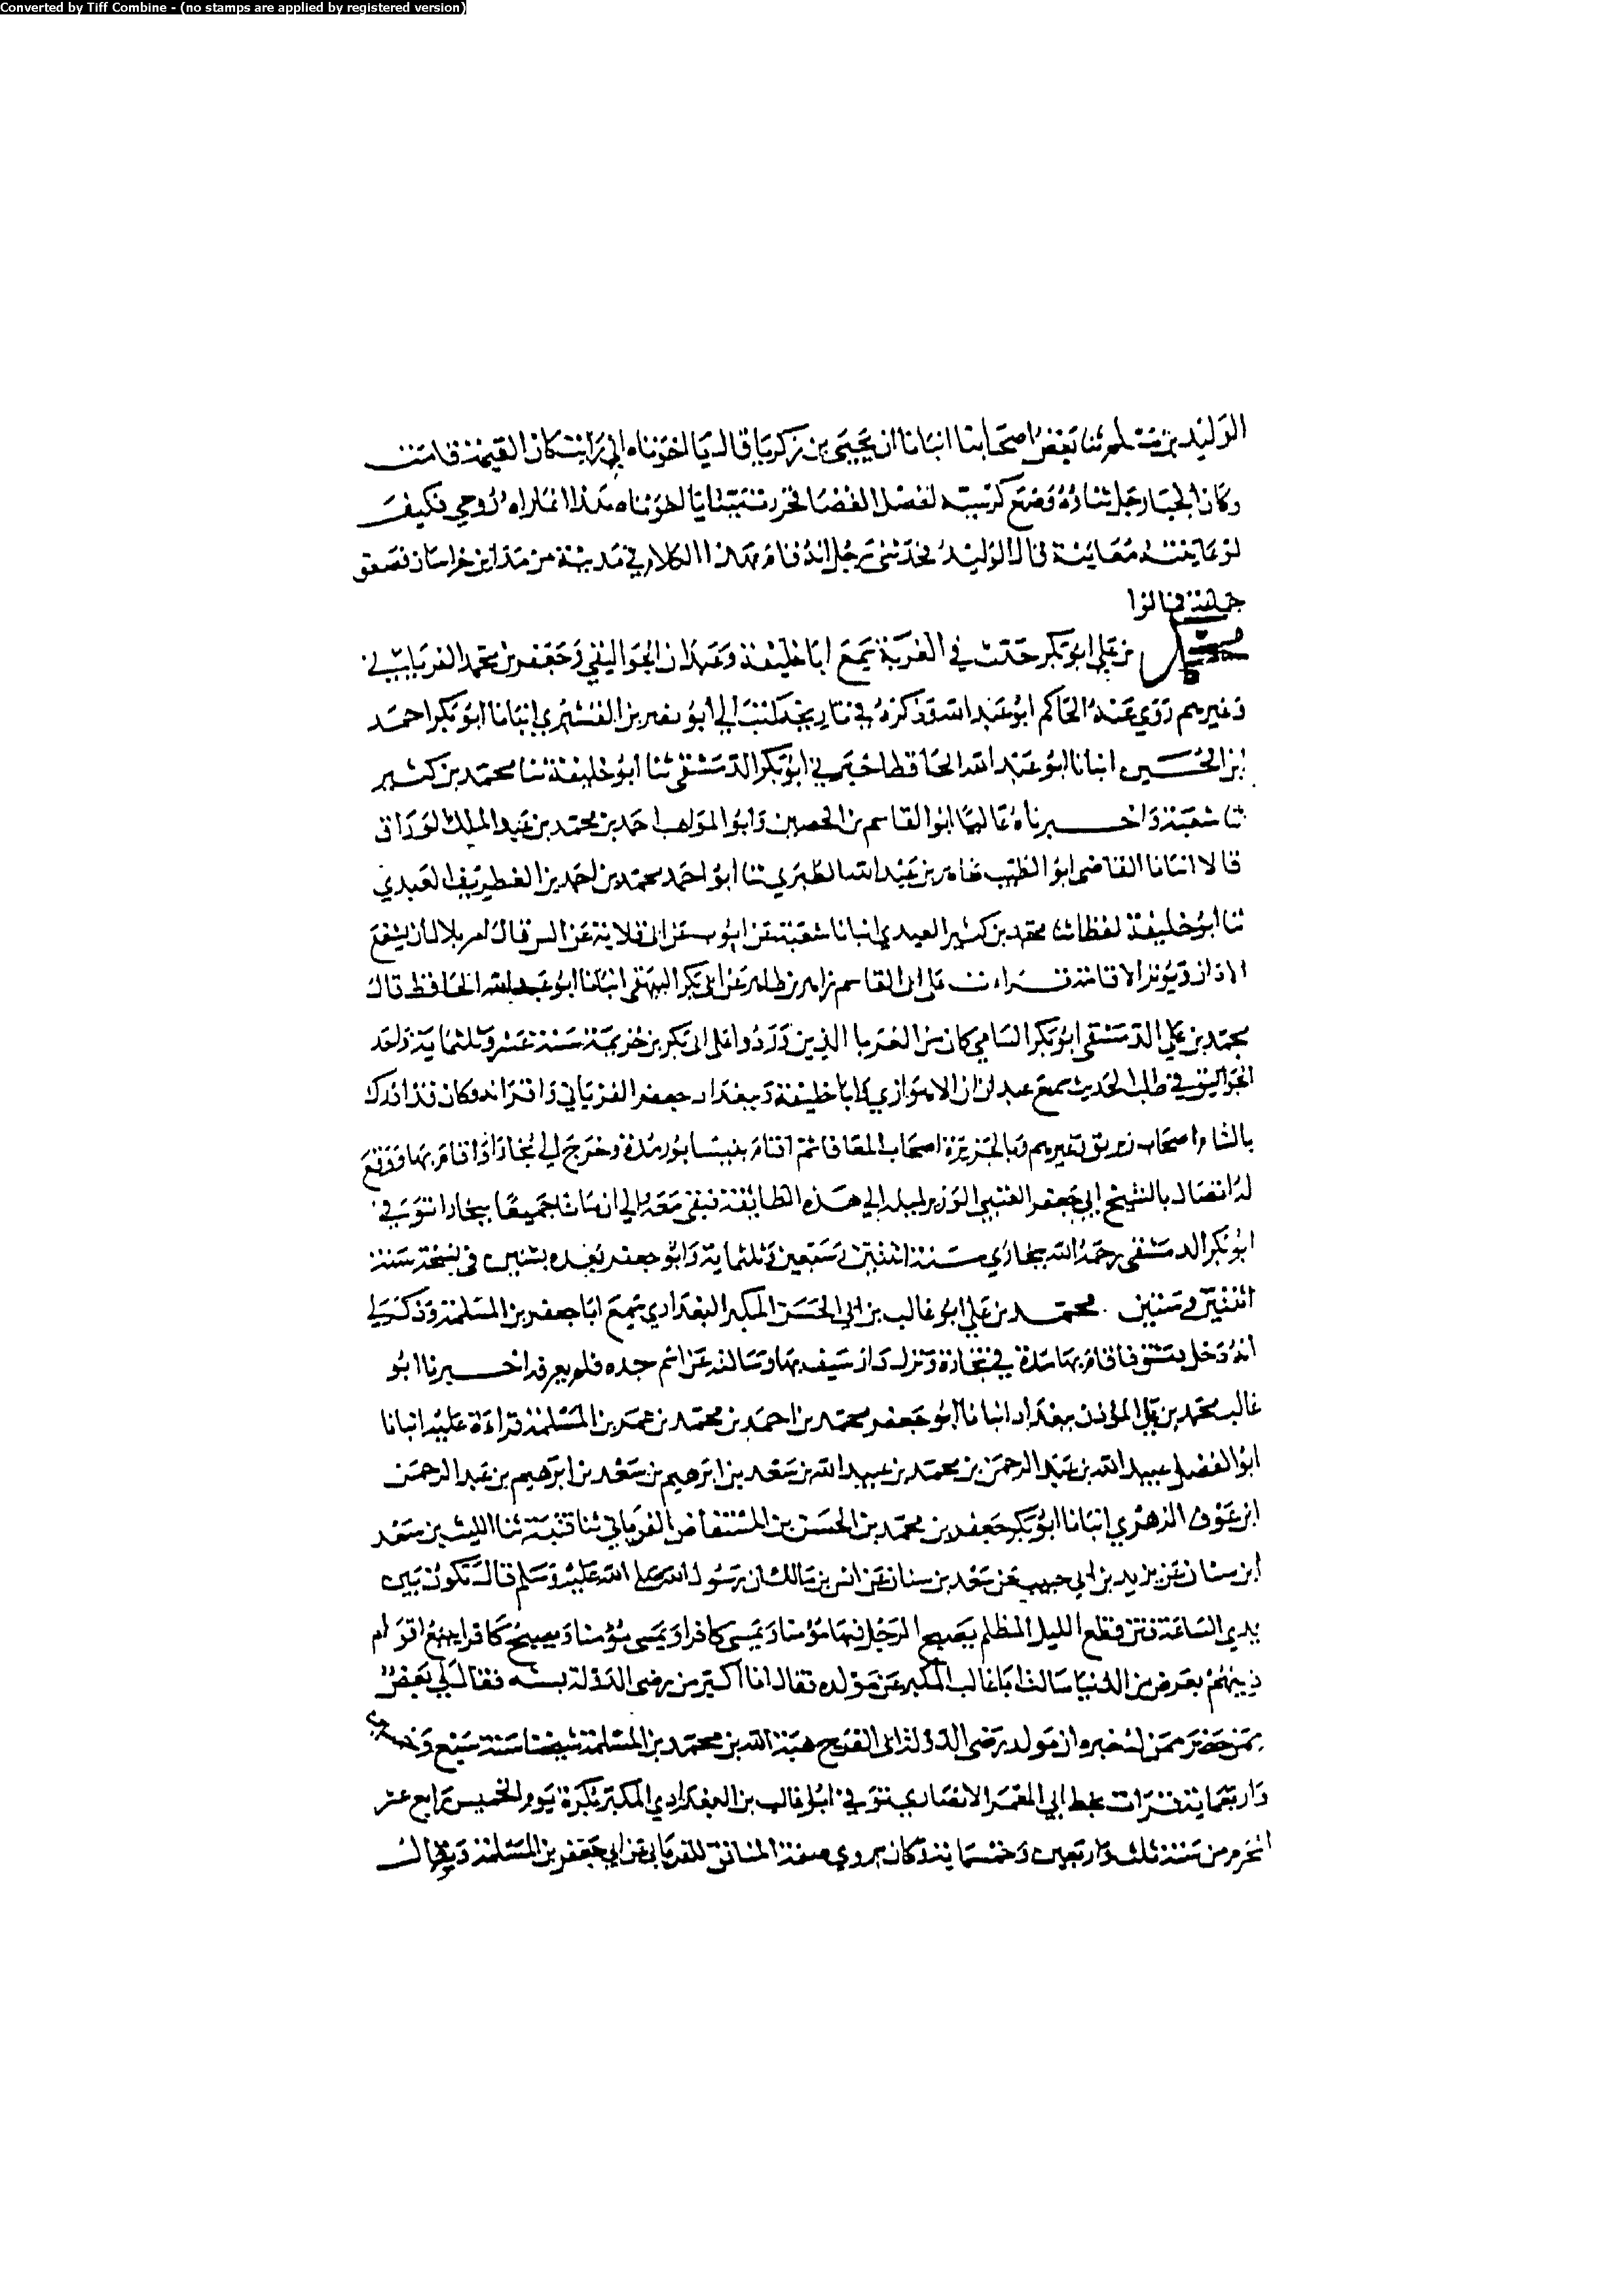 Converted by Tiff Combine - (no stamps are applied by registered version)
الوليد بن مسلم ثنا بعض اصحابنا انبانا ان يحيى بن زكريا قال يا اخوتاه اني رايت كان القيمة قامت
وكان الجبار جل ثناؤه وضع كرسيه لفصل القضا فخررت ميتا يا اخوتاه هذا انما راه روحي فكيف
لو عاينته معاينة قال الوليد فحدثني رجل انه قام بهذا الكلام في مدينة من مداين خراسان فصعق
جماعة فماتوا
محمد بن علي ابو بكر حدث في الغربة سمع ابا خليفة وعبدان الجواليقي وجعفر بن محمد الفريابي
وغيرهم روى عنه الحاكم ابو عبد الله وذكره في تاريخه كتب الي ابو نصر بن القشيري انبانا ابو بكر احمد
ابن الحسين انبانا ابو عبد الله الحافظ اخبرني ابو بكر الدمشقي ثنا ابو خليفة ثنا محمد بن كثير
ثنا شعبة واخبرناه عاليا ابو القاسم بن الحصين وابو المواهب احمد بن محمد بن عبد الملك الوراق
قالا انبانا القاضي ابو الطيب طاهر بن عبد الله الطبري ثنا ابو احمد محمد بن احمد بن الغطريف العبدي
ثنا ابو خليفة لفظا ثنا محمد بن كثير العبدي انبانا شعبة عن ايوب عن ابي قلابة عن انس قال امر بلال ان يشفع
الاذان ويوتر الاقامة قرات على ابي القاسم زاهر بن طاهر عن ابي بكر البيهقي انبانا ابو عبد الله الحافظ قال
محمد بن علي الدمشقي ابو بكر الشامي كان من الغربا الذين وردوا على ابي بكر بن خزيمة سنة عشر وثلثماية واحد
الجوالين في طلب الحديث سمع عبدان الاهوازي وابا خليفة وببغداد جعفر الفريابي واقرانه وكان قد ادرك
بالشام اصحاب وغيرهم وبالجزيرة اصحاب المعافا ثم اقام بنيسابور مدة وخرج الى بخارا واقام بها ووقع
له اتصال بالشيخ ابي جعفر العتبي الوزير لميله الي هذه الطائفة فبقي معه الي ان ماتا جميعا ببخارا توفي
ابو بكر الدمشقي رحمه الله ببخارى سنة اثنتين وسبعين وثلثماية وابو جعفر بعده بسنين في نسخة سنة
اثنتين وستين . محمد بن علي ابو غالب بن ابي الحسن المكبر البغدادي سمع ابا جعفر بن المسلمة وذكر لي
انه دخل دمشق فاقام بها مدة في تجارة ونزل دار سيف بها وسالته عن اسم جده فلم يعرفه اخبرنا ابو
غالب محمد بن علي المؤذن ببغداد انبانا ابو جعفر محمد بن احمد بن محمد بن عمر بن المسلمة قراءة عليه انبانا
ابو الفضل عبيد الله بن عبد الرحمن بن محمد بن عبيد الله بن سعد بن ابرهيم بن سعد بن ابرهيم بن عبد الرحمن
ابن عوف الزهري انبانا ابو بكر جعفر بن محمد بن الحسن بن المستفاض الفريابي ثنا قتيبة ثنا الليث بن سعد
ابن سنان عن يزيد بن ابي حبيب عن سعد بن سنان عن انس بن مالك ان رسول الله صلى الله عليه وسلم قال تكون بين
يدي الساعة فتن قطع الليل المظلم يصبح الرجل فيها مؤمنا ويمسي كافرا ويمسي مؤمنا ويصبح كافرا يبيع اقوام
دينهم بعرض من الدنيا سالت ابا غالب المكبر عن مولده فقال انا اكبر من رضى الدولة بسنه فقال لي بعض
من حضر ممن لنخبره ان مولد رضى الدولة ابي الفتح هبة الله بن محمد بن المسلمة شيخنا سنة سبع وخمسين
واربعماية قرات بخط ابي المعمر الانصاري توفي ابو غالب بن البغدادي المكبر بكرة يوم الخميس رابع عشر
المحرم من سنة ثلث واربعين وخمسماية كان يروي صفة المنافق للفريابي عن ابي جعفر بن المسلمة ومجالس